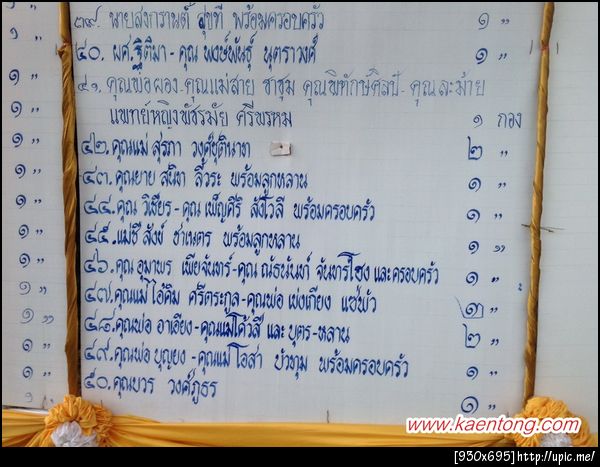 ๓๙. นายสงกรานต์ สุขที พร้อมครอบครัว ๑ "
๔๐. ผศ.ฐิติมา - คุณ พงษ์พันธุ์ นุตราวงศ์ ๑ "
๔๑. คุณพ่อผอง - คุณแม่สาย ชาชุม คุณพิทักษ์ศิลป์ - คุณละม้าย
แพทย์หญิงพัชรมัย ศรีพรหม ๑ กอง
๔๒. คุณแม่ สุรภา วงศ์ชุตินาท ๒ "
๔๓. คุณยาย สนิท ลิ้วระ พร้อมลูกหลาน ๑ "
๔๔. คุณ วิเชียร - คุณ เพ็ญศิริ สังโวลี พร้อมครอบครัว ๑ "
๔๕. แม่ชี สังข์ ชาเนตร พร้อมลูกหลาน ๑ "
๔๖. คุณ อุมาพร เพียจันทร์ - คุณ ณัธนันท์ จันทรโฮง และครอบครัว ๑ "
๔๗. คุณแม่ ไอ้คิม ศรีตระกูล - คุณพ่อ เบ่งเกียง แซ่พัว ๓ "
๔๘. คุณพ่อ อาเอียง - คุณแม่โค้วสี และ บุตร - หลาน ๒ "
๔๙. คุณพ่อ บุญยง - คุณแม่ โอสา บัวชุม พร้อมครอบครัว ๑ "
๕๐. คุณบวร วงศ์ภูธร ๑ "
www.kaentong.com
[930x695] http://upic.me/